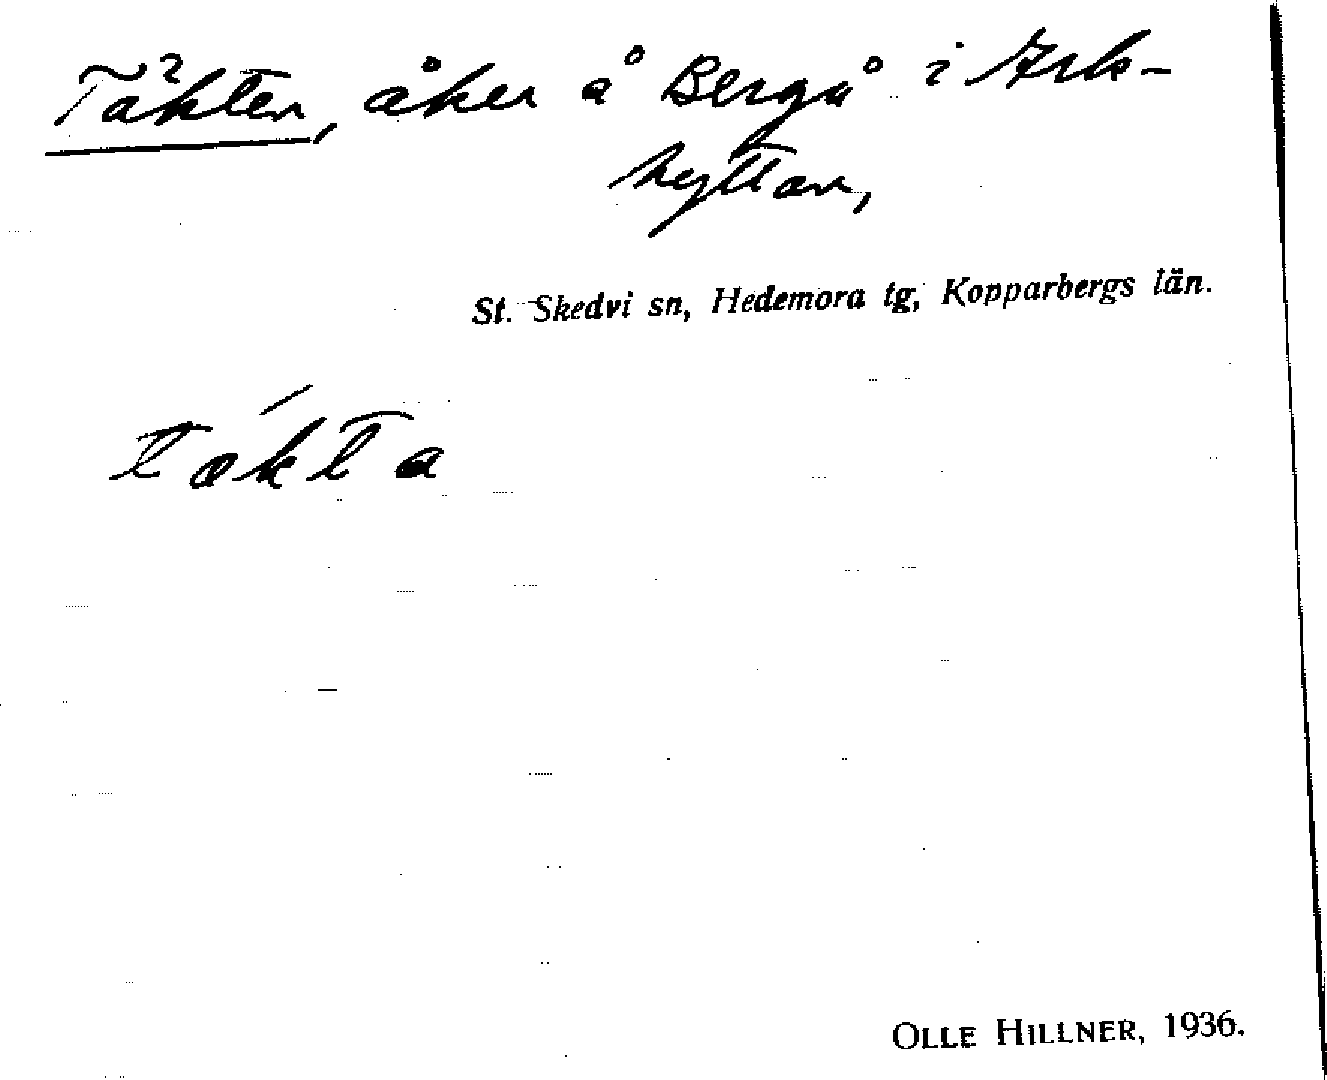 Täkten, åker å Bergå i Ark-
hyttan,
St. Skedvi sn, Hedemora tg, Kopparbergs län.
tǽkta
OLLE HILLNER, 1936.